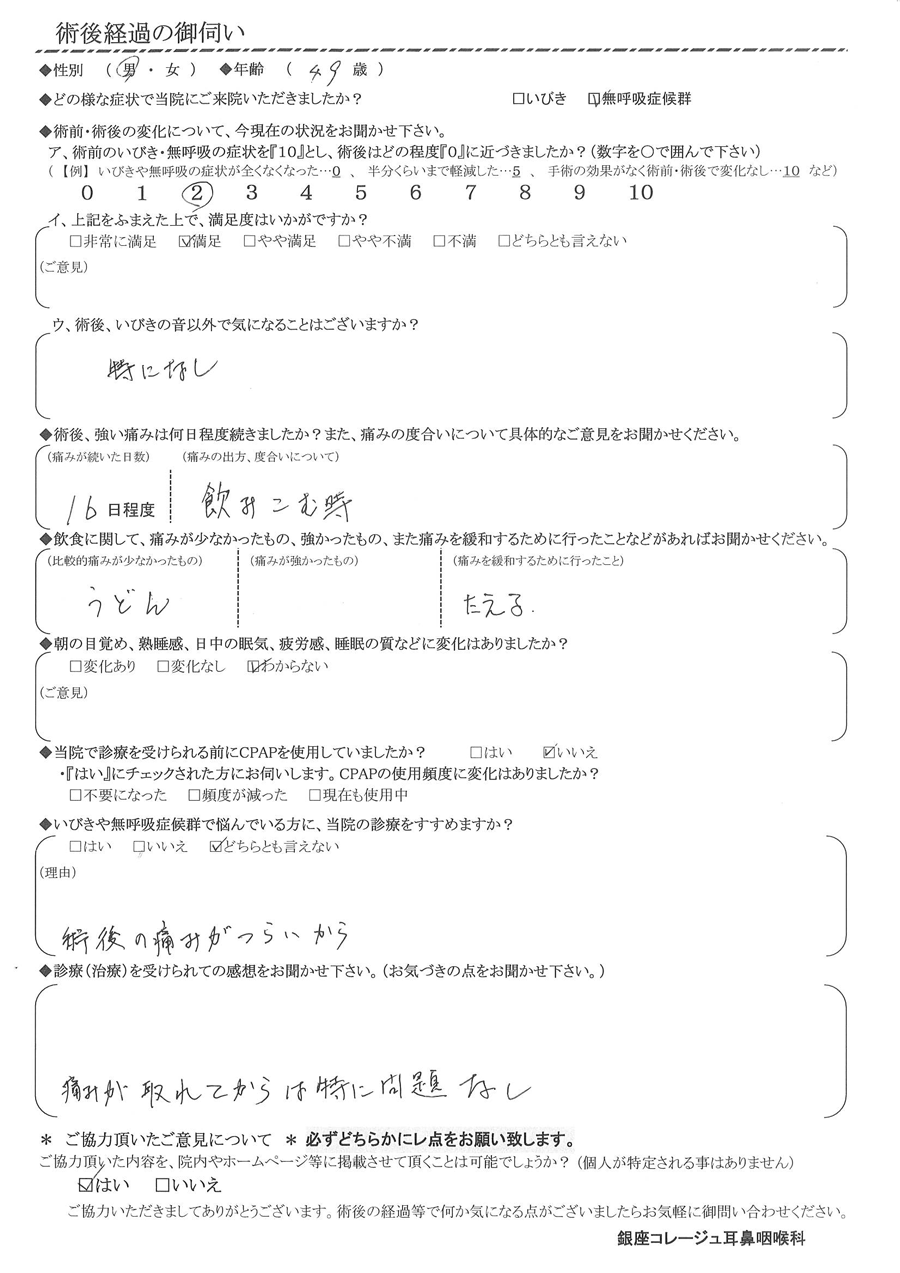 術後経過の御伺い
◆性別 ( 男 ・ 女 ) ◆年齢 ( 49 歳 )
◆どの様な症状で当院にご来院いただきましたか? □いびき ☑無呼吸症候群
◆術前・術後の変化について、今現在の状況をお聞かせ下さい。
ア、術前のいびき・無呼吸の症状を『10』とし、術後はどの程度『0』に近づきましたか?(数字を〇で囲んで下さい)
(【例】いびきや無呼吸の症状が全くなくなった…0 、 半分くらいまで軽減した…5 、 手術の効果がなく術前・術後で変化なし…10 など)
0 1 2 3 4 5 6 7 8 9 10
イ、上記をふまえた上で、満足度はいかがですか?
□非常に満足 ☑満足 □やや満足 □やや不満 □不満 □どちらとも言えない
(ご意見)
ウ、術後、いびきの音以外で気になることはございますか?
特になし
◆術後、強い痛みは何日程度続きましたか?また、痛みの度合いについて具体的なご意見をお聞かせください。
(痛みが続いた日数) (痛みの出方、度合いについて)
16 日程度 飲みこむ時
◆飲食に関して、痛みが少なかったもの、強かったもの、また痛みを緩和するために行ったことなどがあればお聞かせください。
(比較的痛みが少なかったもの) (痛みが強かったもの) (痛みを緩和するために行ったこと)
うどん たえる.
◆朝の目覚め、熟睡感、日中の眠気、疲労感、睡眠の質などに変化はありましたか?
□変化あり □変化なし ☑わからない
(ご意見)
◆当院で診療を受けられる前にCPAPを使用していましたか? □はい ☑いいえ
・『はい』にチェックされた方にお伺いします。CPAPの使用頻度に変化はありましたか?
□不要になった □頻度が減った □現在も使用中
◆いびきや無呼吸症候群で悩んでいる方に、当院の診療をすすめますか?
□はい □いいえ ☑どちらとも言えない
(理由)
術後の痛みがつらいから
◆診療(治療)を受けられての感想をお聞かせ下さい。(お気づきの点をお聞かせ下さい。)
痛みが取れてからは特に問題なし
＊ ご協力頂いたご意見について ＊ 必ずどちらかにレ点をお願い致します。
ご協力頂いた内容を、院内やホームページ等に掲載させて頂くことは可能でしょうか?(個人が特定される事はありません)
☑はい □いいえ
ご協力いただきましてありがとうございます。術後の経過等で何か気になる点がございましたらお気軽に御問い合わせください。
銀座コレージュ耳鼻咽喉科